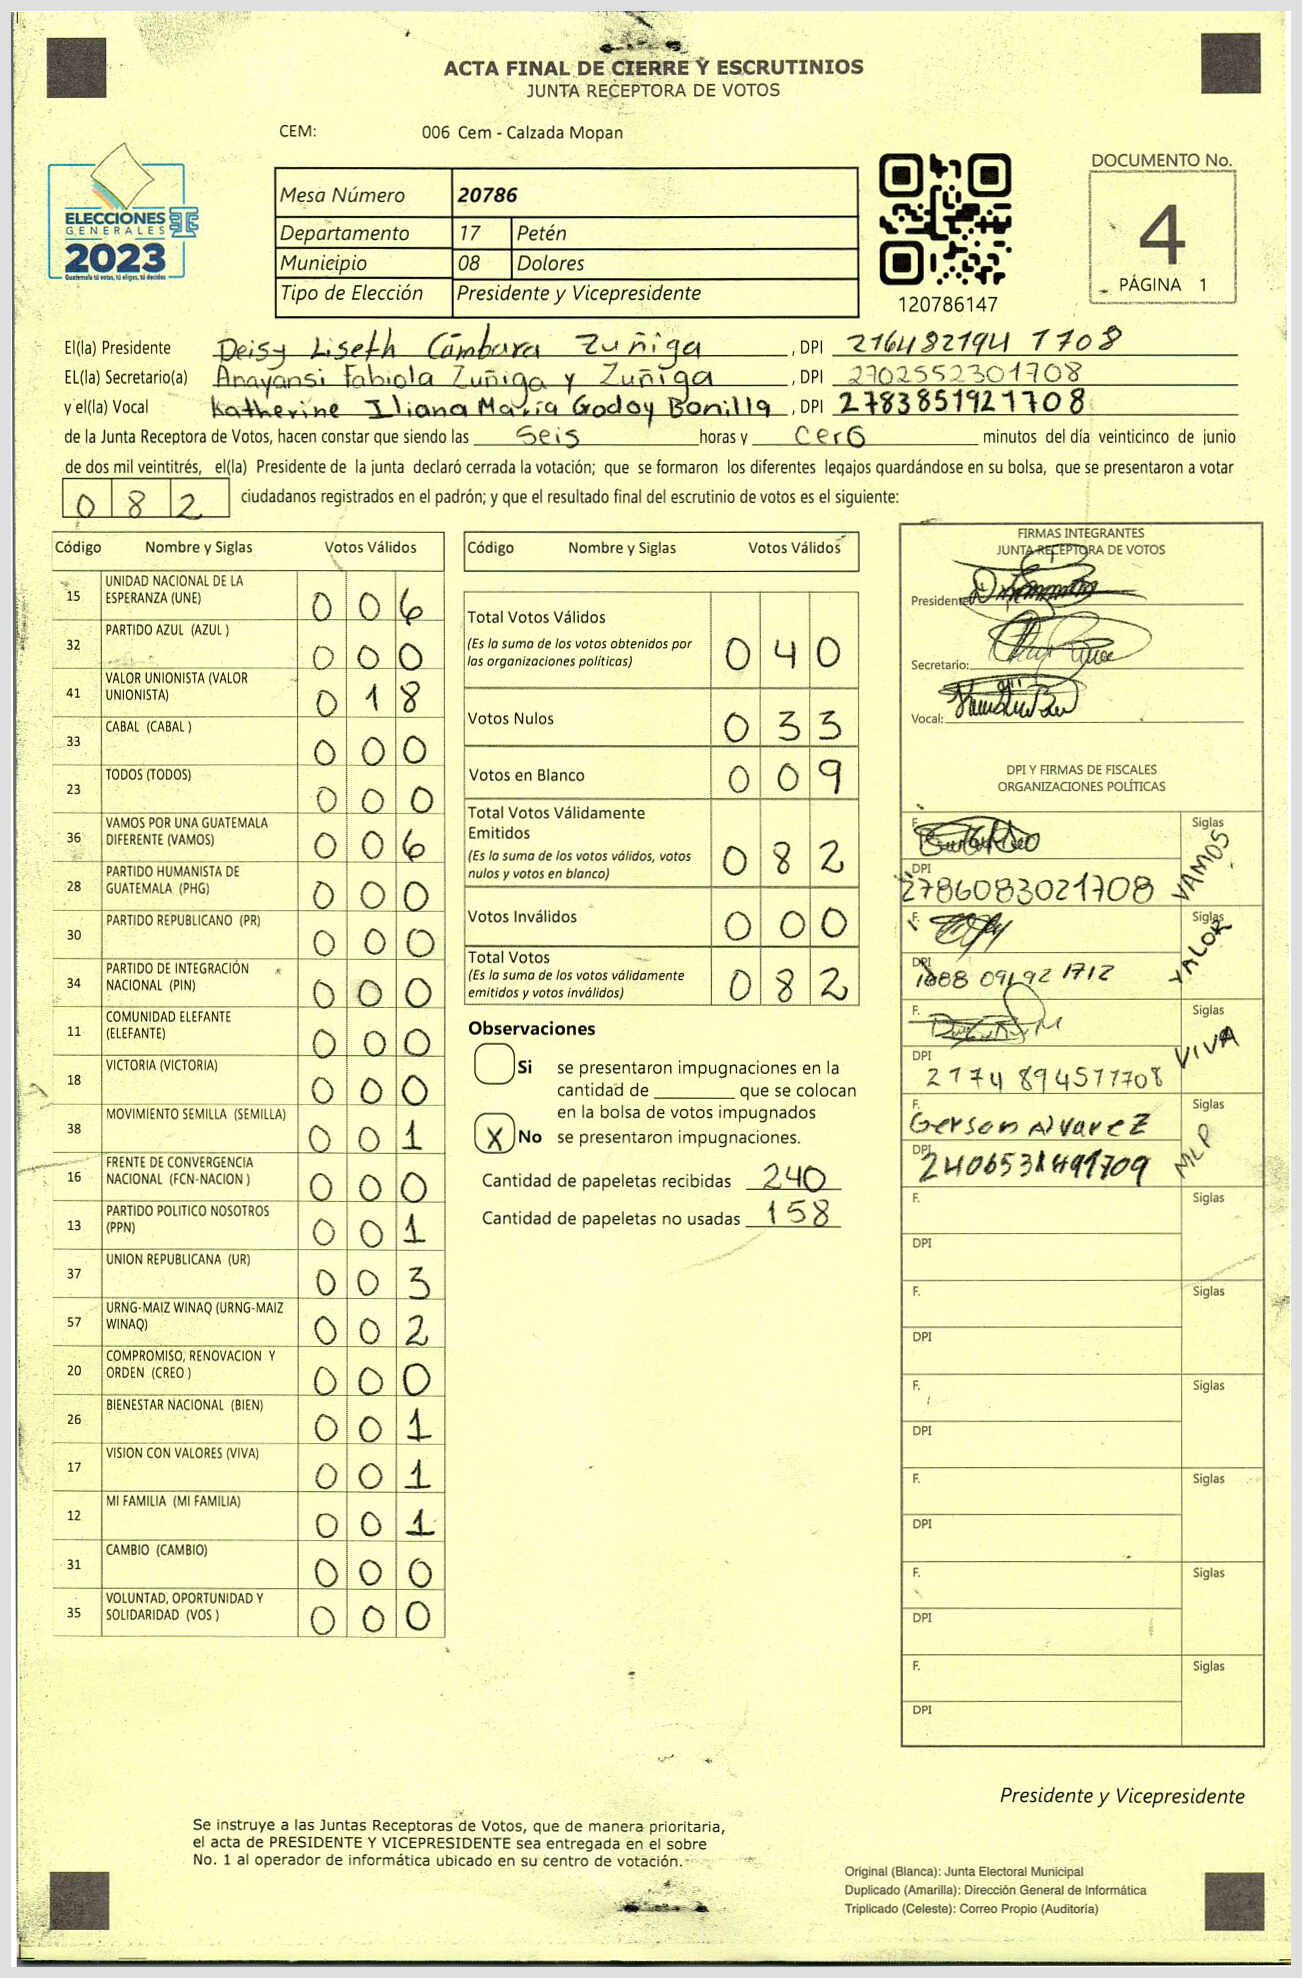 ACTA FINAL DE CIERRE Y ESCRUTINIOS
JUNTA RECEPTORA DE VOTOS
CEM: 006 Cem - Calzada Mopan
ELECCIONES
GENERALES
2023
Guatemala tú votas, tú eliges, tú decides
Mesa Número 20786
Departamento 17 Petén
Municipio 08 Dolores
Tipo de Elección Presidente y Vicepresidente
120786147
DOCUMENTO No.
4
PÁGINA 1
El(la) Presidente Deisy Liseth Cámbara Zuñiga, DPI 216482194 1708
EL(la) Secretario(a) Anayansi Fabiola Zuñiga y Zuñiga, DPI 2702552301708
y el(la) Vocal Katherine Iliana María Godoy Bonilla, DPI 2783851921708
de la Junta Receptora de Votos, hacen constar que siendo las seis horas y cero minutos del día veinticinco de junio
de dos mil veintitrés, el(la) Presidente de la junta declaró cerrada la votación; que se formaron los diferentes legajos guardándose en su bolsa, que se presentaron a votar
082 ciudadanos registrados en el padrón; y que el resultado final del escrutinio de votos es el siguiente:
Código Nombre y Siglas Votos Válidos
15 UNIDAD NACIONAL DE LA ESPERANZA (UNE) 0 0 6
32 PARTIDO AZUL (AZUL ) 0 0 0
41 VALOR UNIONISTA (VALOR UNIONISTA) 0 1 8
33 CABAL (CABAL ) 0 0 0
23 TODOS (TODOS) 0 0 0
36 VAMOS POR UNA GUATEMALA DIFERENTE (VAMOS) 0 0 6
28 PARTIDO HUMANISTA DE GUATEMALA (PHG) 0 0 0
30 PARTIDO REPUBLICANO (PR) 0 0 0
34 PARTIDO DE INTEGRACIÓN NACIONAL (PIN) 0 0 0
11 COMUNIDAD ELEFANTE (ELEFANTE) 0 0 0
18 VICTORIA (VICTORIA) 0 0 0
38 MOVIMIENTO SEMILLA (SEMILLA) 0 0 1
16 FRENTE DE CONVERGENCIA NACIONAL (FCN-NACION ) 0 0 0
13 PARTIDO POLITICO NOSOTROS (PPN) 0 0 1
37 UNION REPUBLICANA (UR) 0 0 3
57 URNG-MAIZ WINAQ (URNG-MAIZ WINAQ) 0 0 2
20 COMPROMISO, RENOVACION Y ORDEN (CREO ) 0 0 0
26 BIENESTAR NACIONAL (BIEN) 0 0 1
17 VISION CON VALORES (VIVA) 0 0 1
12 MI FAMILIA (MI FAMILIA) 0 0 1
31 CAMBIO (CAMBIO) 0 0 0
35 VOLUNTAD, OPORTUNIDAD Y SOLIDARIDAD (VOS ) 0 0 0
Código Nombre y Siglas Votos Válidos
Total Votos Válidos 0 4 0
(Es la suma de los votos obtenidos por
las organizaciones políticas)
Votos Nulos 0 3 3
Votos en Blanco 0 0 9
Total Votos Válidamente
Emitidos 0 8 2
(Es la suma de los votos válidos, votos
nulos y votos en blanco)
Votos Inválidos 0 0 0
Total Votos 0 8 2
(Es la suma de los votos válidamente
emitidos y votos inválidos)
Observaciones
Si se presentaron impugnaciones en la
cantidad de ________ que se colocan
en la bolsa de votos impugnados
X No se presentaron impugnaciones.
Cantidad de papeletas recibidas 240
Cantidad de papeletas no usadas 158
FIRMAS INTEGRANTES
JUNTA RECEPTORA DE VOTOS
Presidente:
Secretario:
Vocal:
DPI Y FIRMAS DE FISCALES
ORGANIZACIONES POLÍTICAS
F. Siglas VAMOS
DPI 2786083021708
F. Siglas VALOR
DPI
F. Siglas VIVA
DPI 2174 894511708
F. Gerson Alvarez Siglas MLP
DPI
F. Siglas
DPI
F. Siglas
DPI
F. Siglas
DPI
F. Siglas
DPI
F. Siglas
DPI
F. Siglas
DPI
Presidente y Vicepresidente
Se instruye a las Juntas Receptoras de Votos, que de manera prioritaria,
el acta de PRESIDENTE Y VICEPRESIDENTE sea entregada en el sobre
No. 1 al operador de informática ubicado en su centro de votación.
Original (Blanca): Junta Electoral Municipal
Duplicado (Amarilla): Dirección General de Informática
Triplicado (Celeste): Correo Propio (Auditoría)